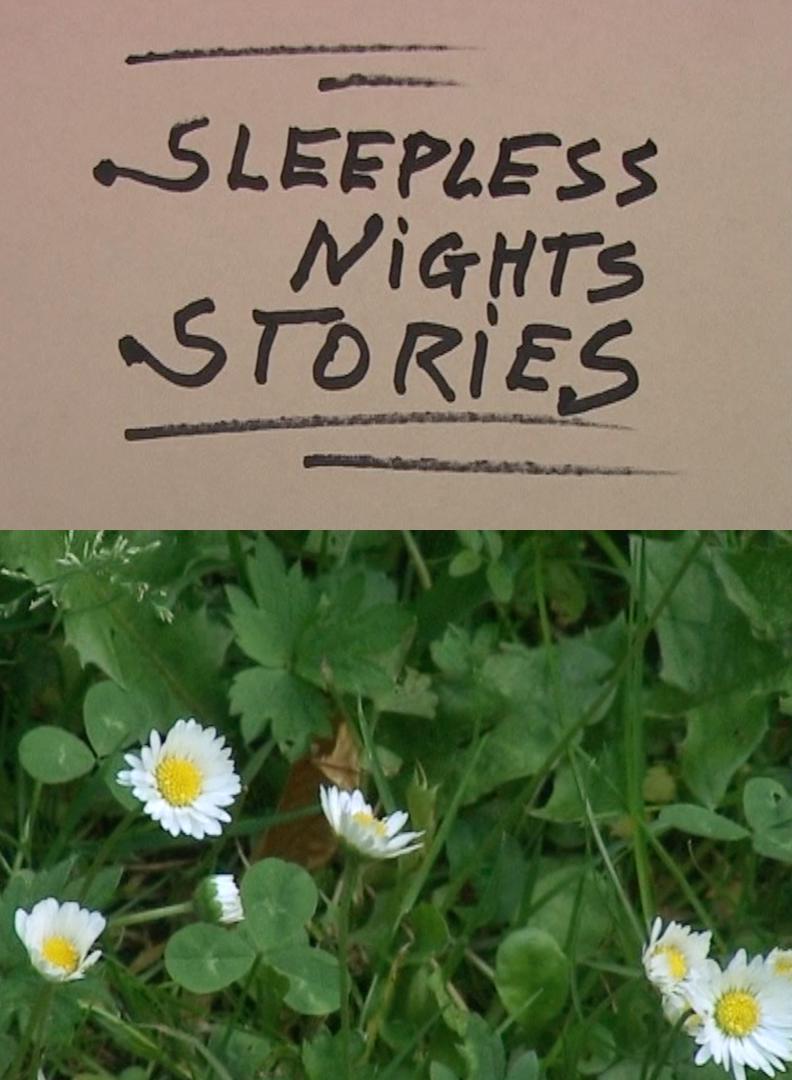 SLEEPLESS
NiGHTS
STORiES